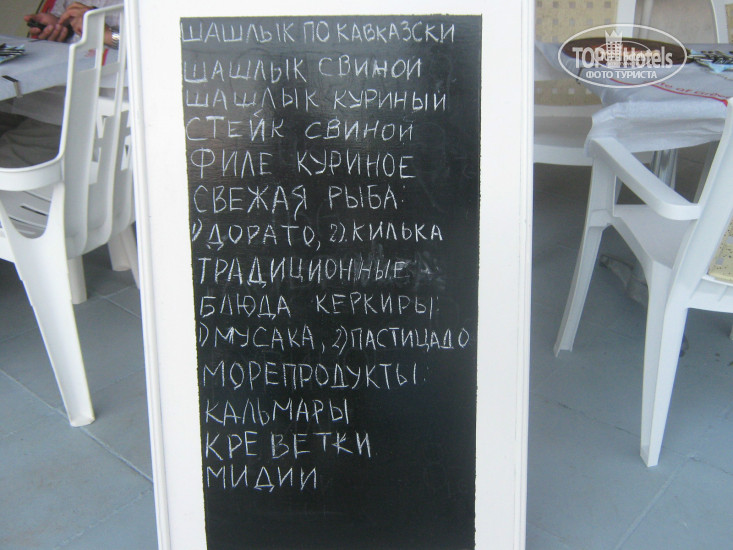 ШАШЛЫК ПО КАВКАЗСКИ
ШАШЛЫК СВИНОЙ
ШАШЛЫК КУРИНЫЙ
СТЕЙК СВИНОЙ
ФИЛЕ КУРИНОЕ
СВЕЖАЯ РЫБА:
1) ДОРАТО, 2). КИЛЬКА
ТРАДИЦИОННЫЕ
БЛЮДА КЕРКИРЫ:
1) МУСАКА, 2) ПАСТИЦАДО
МОРЕПРОДУКТЫ:
КАЛЬМАРЫ
КРЕВЕТКИ
МИДИИ
TOPHotels
ФОТО ТУРИСТА